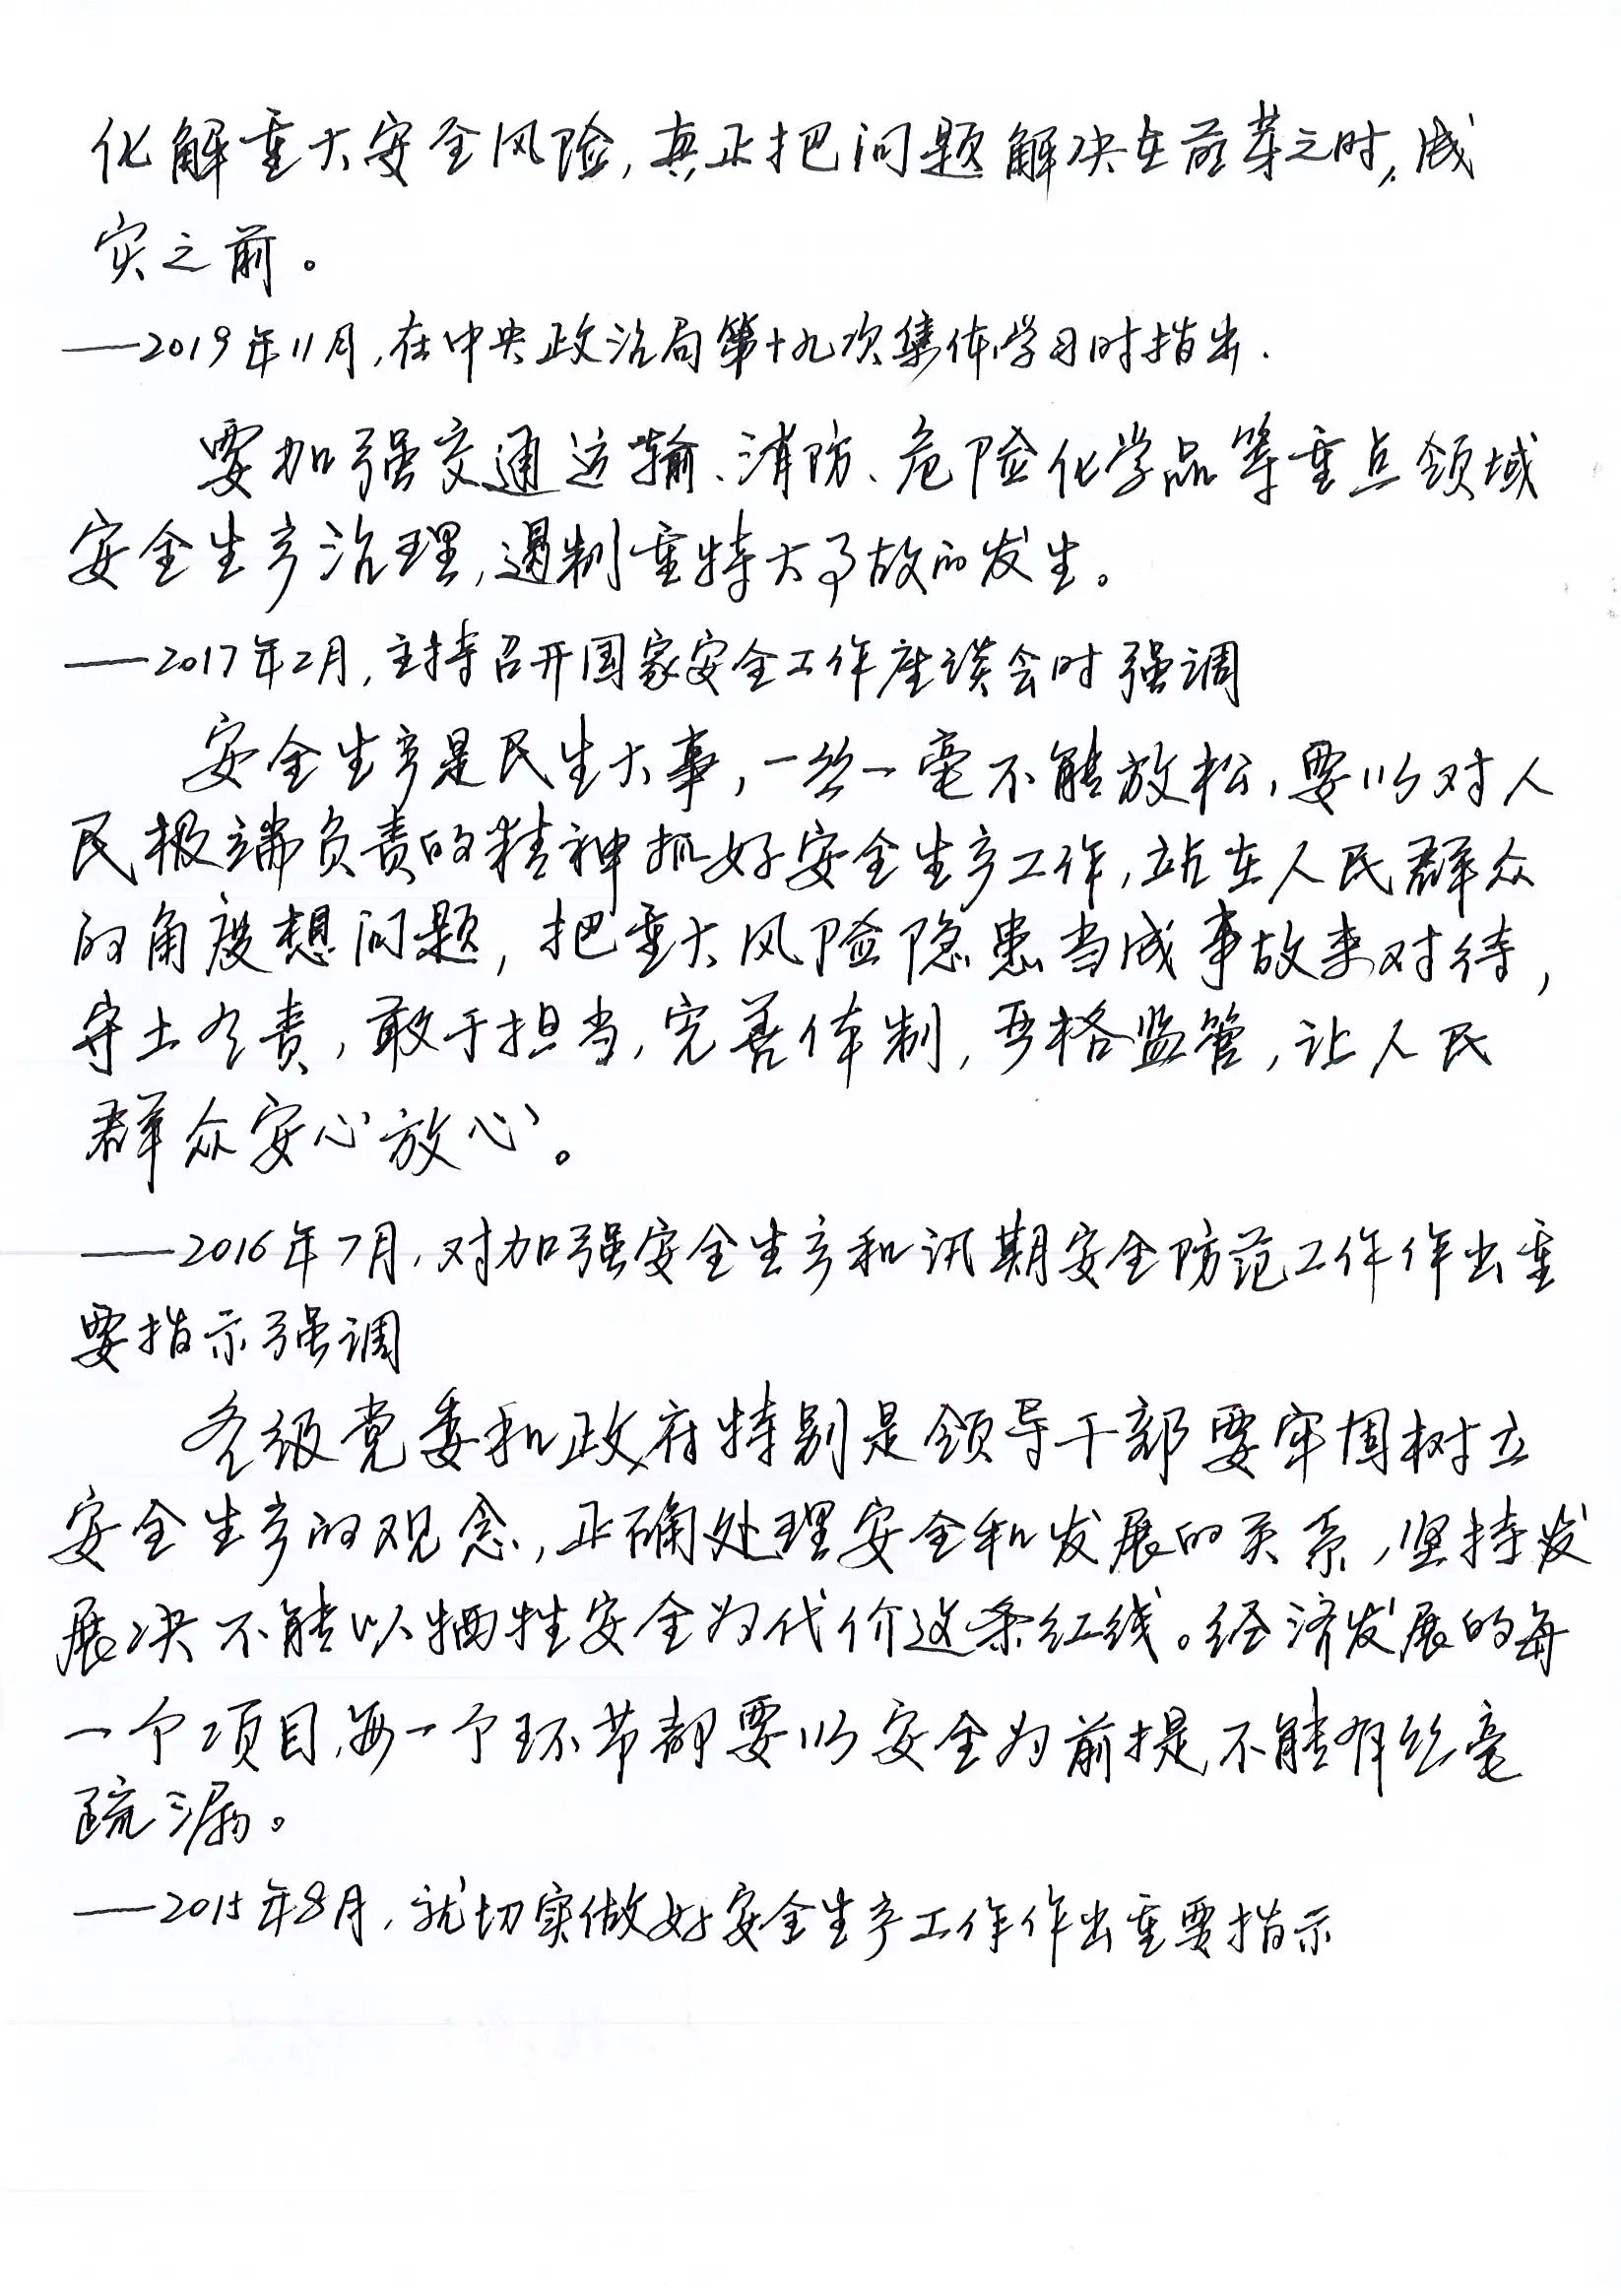 化解重大安全风险,真正把问题解决在萌芽之时,成
灾之前。
——2019年11月,在中央政治局第十九次集体学习时指出.
要加强交通运输、消防、危险化学品等重点领域
安全生产治理,遏制重特大事故的发生。
——2017年2月,主持召开国家安全工作座谈会时强调
安全生产是民生大事,一丝一毫不能放松,要以对人
民极端负责的精神抓好安全生产工作,站在人民群众
的角度想问题,把重大风险隐患当成事故来对待,
守土尽责,敢于担当,完善体制,严格监管,让人民
群众安心放心。
——2016年7月,对加强安全生产和汛期安全防范工作作出重
要指示强调
各级党委和政府特别是领导干部要牢固树立
安全生产的观念,正确处理安全和发展的关系,坚持发
展决不能以牺牲安全为代价这条红线。经济发展的每
一个项目,每一个环节都要以安全为前提,不能有丝毫
疏漏。
——2015年8月,就切实做好安全生产工作作出重要指示